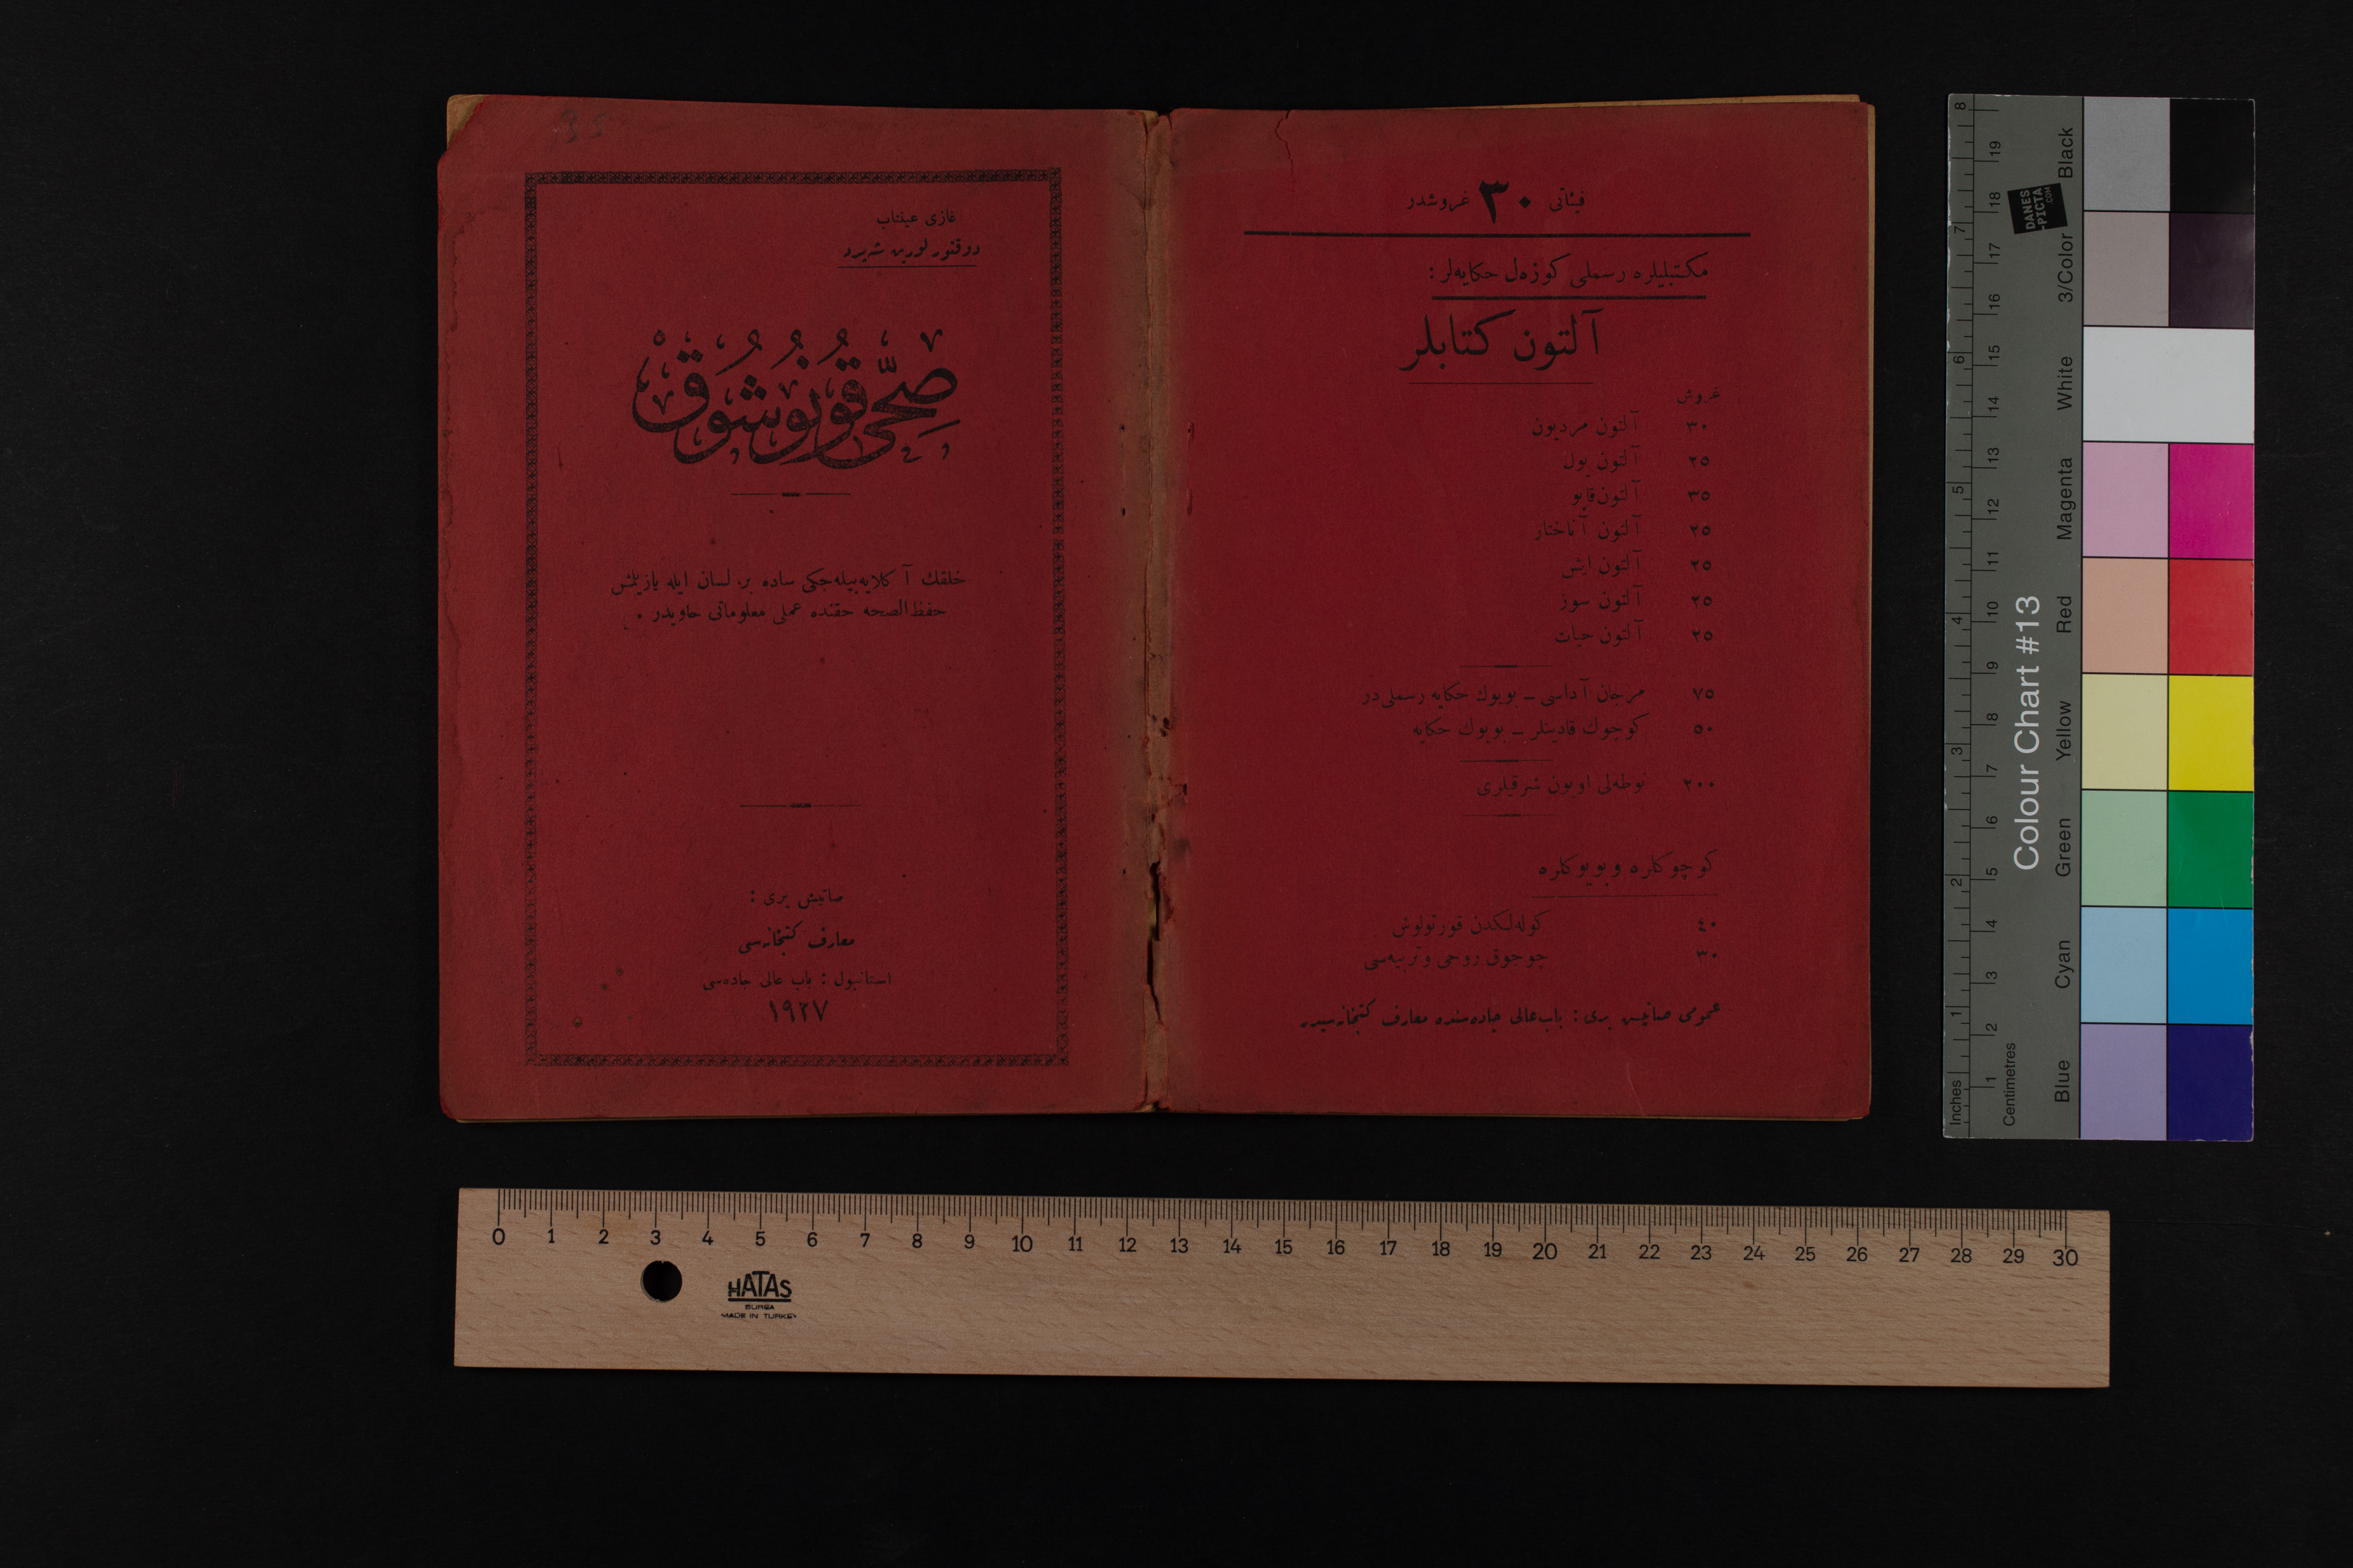 غازی عینتاب
دوقتور لورین شپرد
صِحّی قونوشوق
خلقك آ كلایه‌بیله‌جكی ساده بر لسان ایله یازیلمش
حفظ الصحه حقنده عملی معلوماتی حاویدر .
صاتیش یری :
معارف كتبخانه‌سی
استانبول : باب عالی جاده‌سی
١٩٢٧
فیئاتی ٣٠ غروشدر
مكتبلیلره رسملی كوزه‌ل حكایه‌لر :
آلتون كتابلر
غروش
٣٠ آلتون مردیون
٢٥ آلتون یول
٣٥ آلتون قاپو
٢٥ آلتون آناختار
٢٥ آلتون ایش
٢٥ آلتون سوز
٢٥ آلتون حیات
٧٥ مرجان آداسی ــ بویوك حكایه رسملی در
٥٠ كوجوك قادینلر ــ بویوك حكایه
٢٠٠ نوطه‌لی اویون شرقیلری
كوچوكلره وبویوكلره
٤٠ كوله‌لكدن قورتولوش
٣٠ چوجوق روحی وتربیه‌سی
عمومی صاتیش یری : باب‌عالی جاده‌سنده معارف كتبخانه‌سیدر
8 7 6 5 4 3 2 1 Inches
19 18 17 16 15 14 13 12 11 10 9 8 7 6 5 4 3 2 1 Centimetres
DANES
-PICTA
.COM
Colour Chart #13
Blue Cyan Green Yellow Red Magenta White 3/Color Black
0 1 2 3 4 5 6 7 8 9 10 11 12 13 14 15 16 17 18 19 20 21 22 23 24 25 26 27 28 29 30
HATAS
BURSA
MADE IN TURKEY